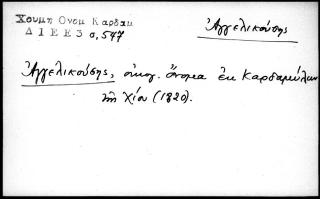 Χουμη Ονομ Καρδαμ
Δ Ι Ε Ε 3 0,547
Ἀγγελικούσης
Ἀγγελικούσης, οἰκογ. ὄνομα ἐκ Καρδαμύλων
τῆς Χίου (1820).